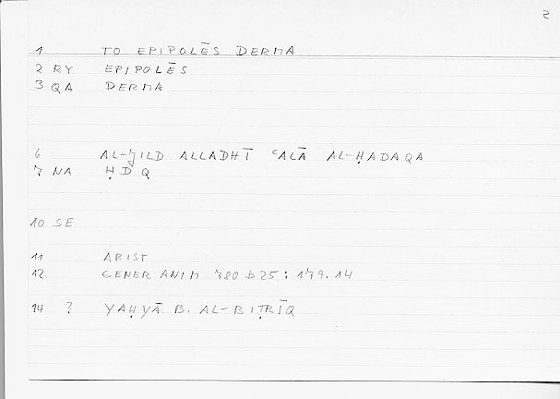 2
1 TO EPIPOLĒS DERMA
2 RY EPIPOLĒS
3 QA DERMA
6 AL-ǦILD ALLADHĪ ʿALĀ AL-ḤADAQA
7 NA Ḥ D Q
10 SE
11 ARIST
12 GENER ANIM 780 b 25 ; 179.14
14 ? YAḤYĀ B. AL-BIṬRĪQ